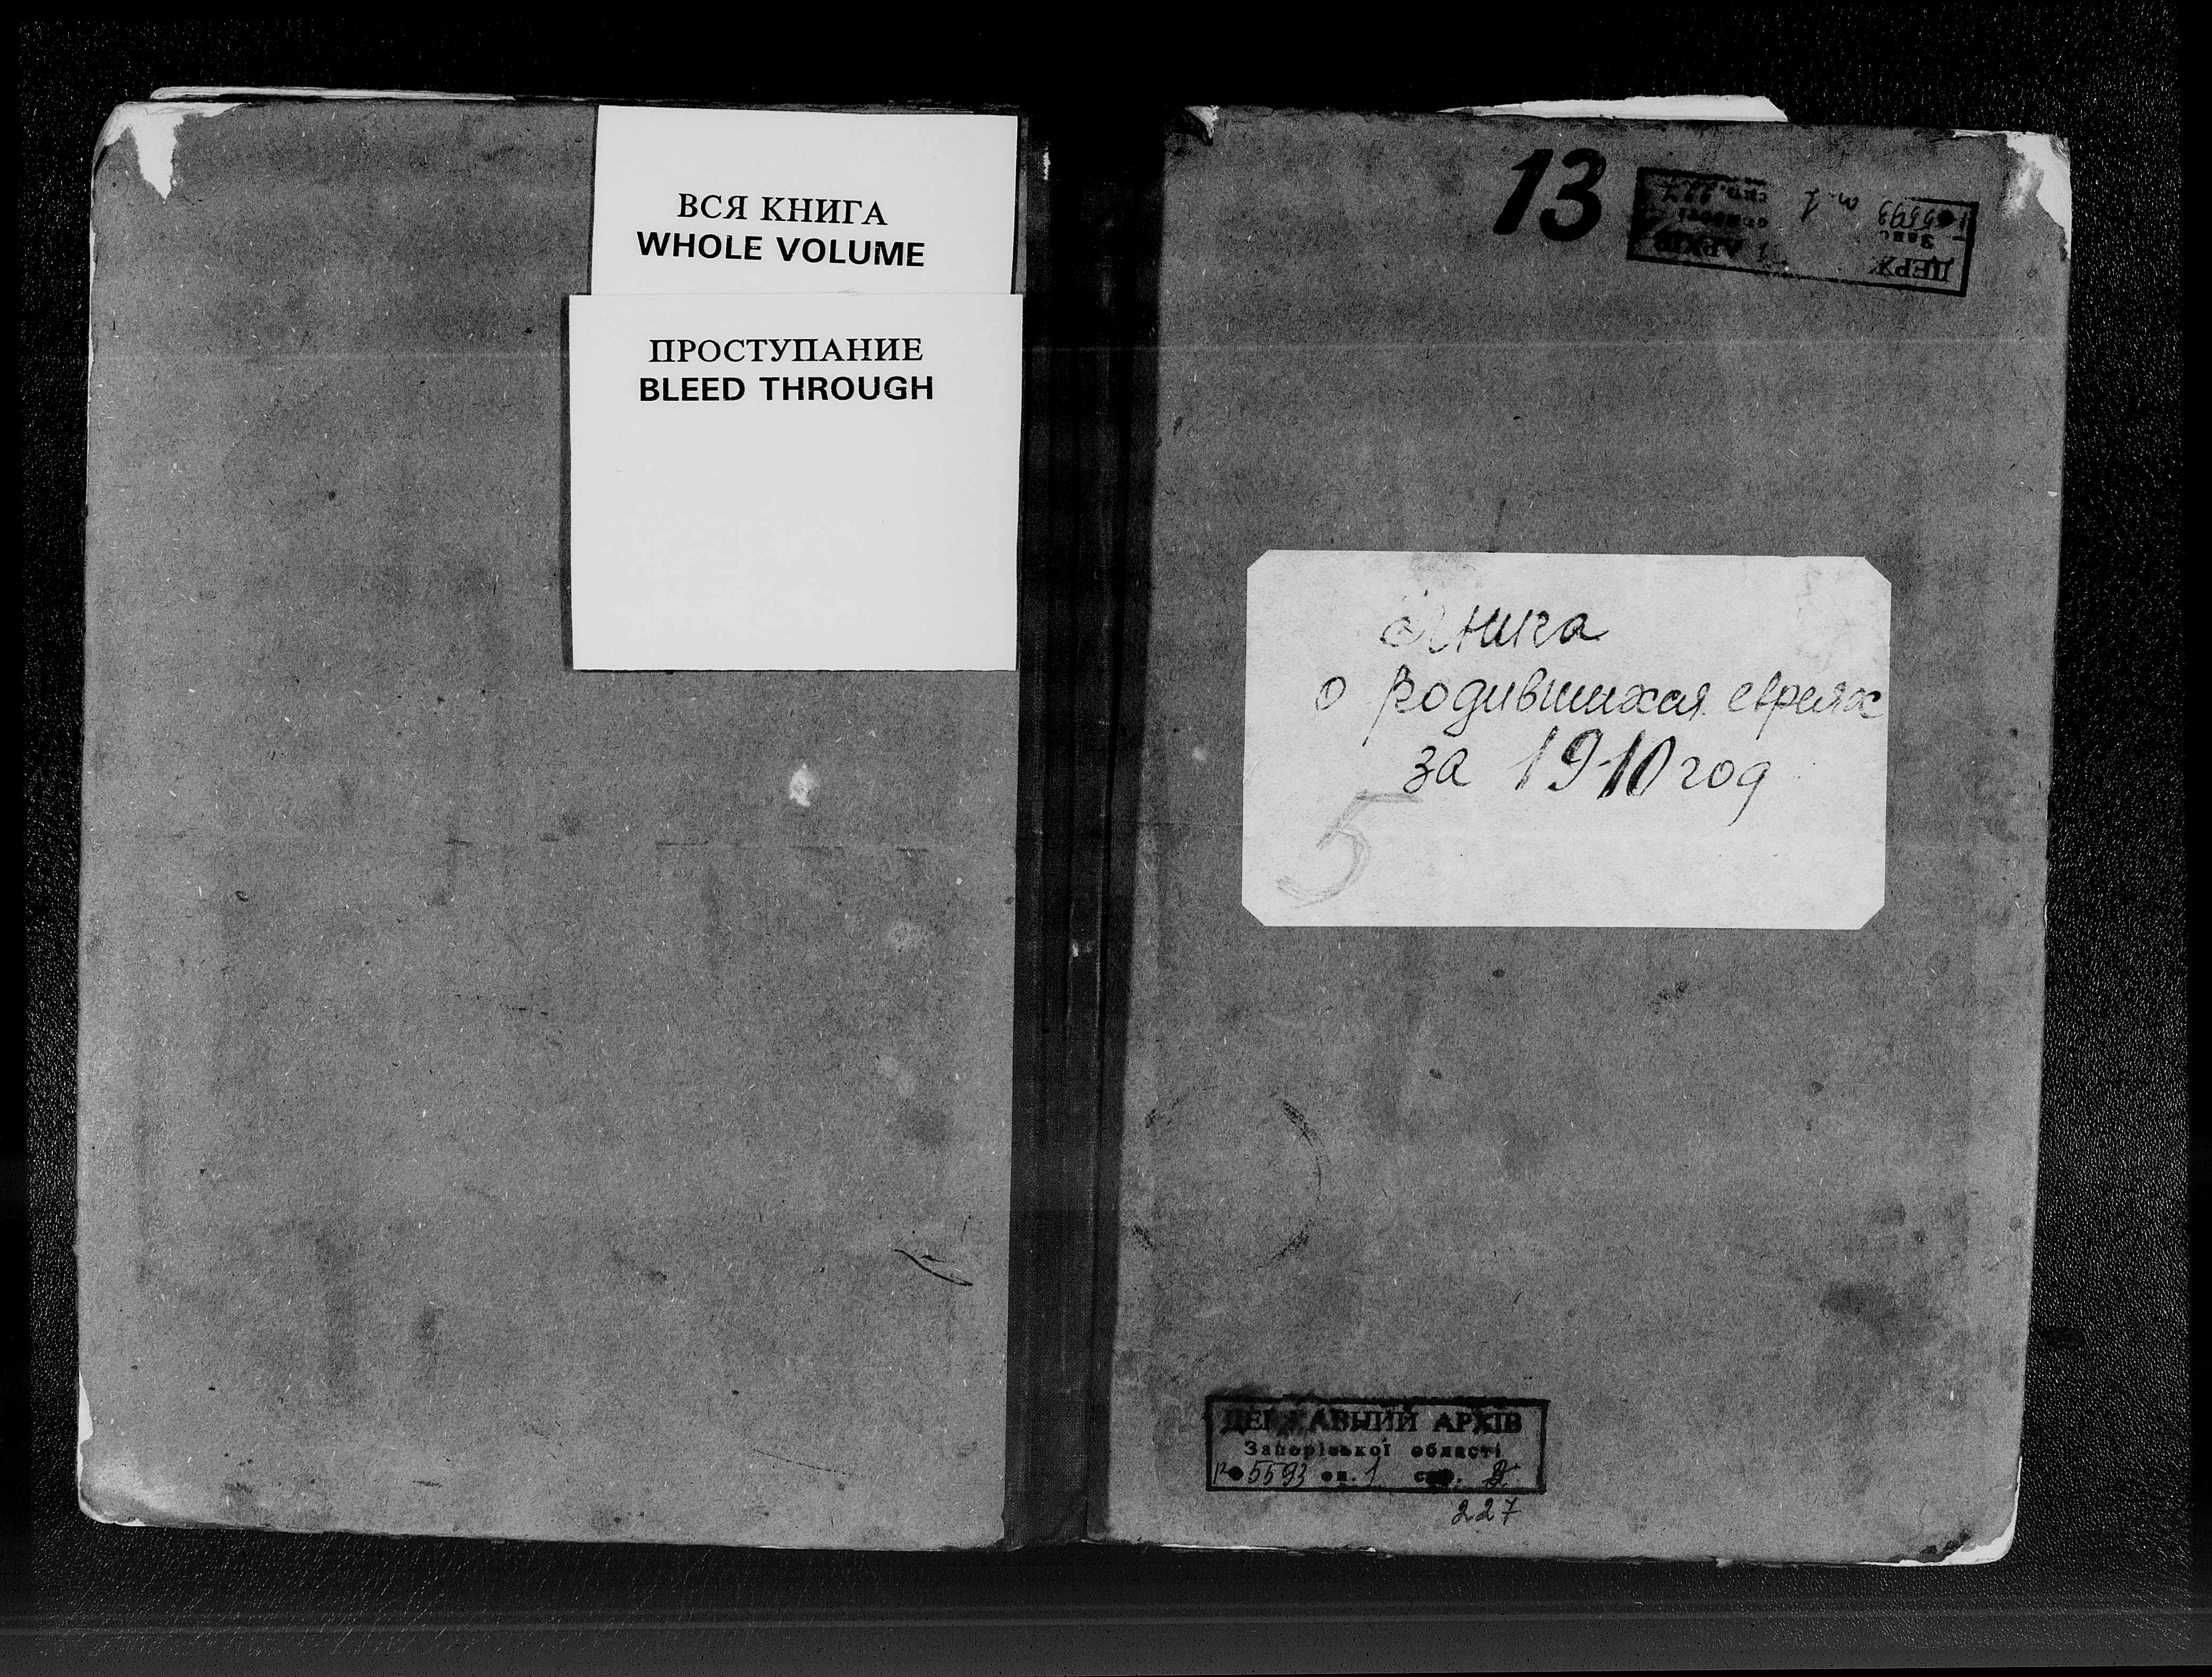 ВСЯ КНИГА
WHOLE VOLUME
ПРОСТУПАНИЕ
BLEED THROUGH
13
ДЕРЖ АРХІВ
5593 1
Книга
о родившихся евреях
за 1910 год
5
ДЕРЖАВНИЙ АРХІВ
Запорізької області
5593 оп. 1 спр.
227